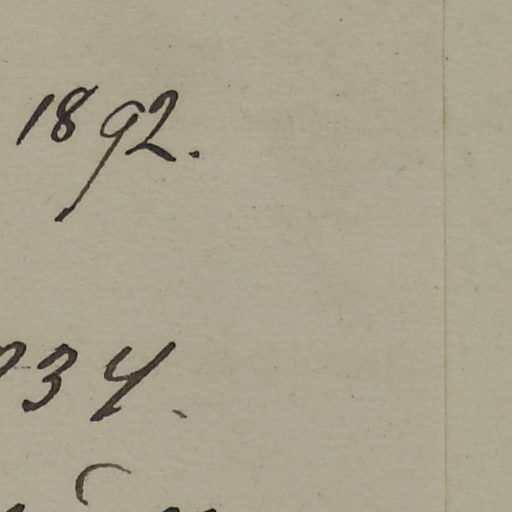 1892.
34.